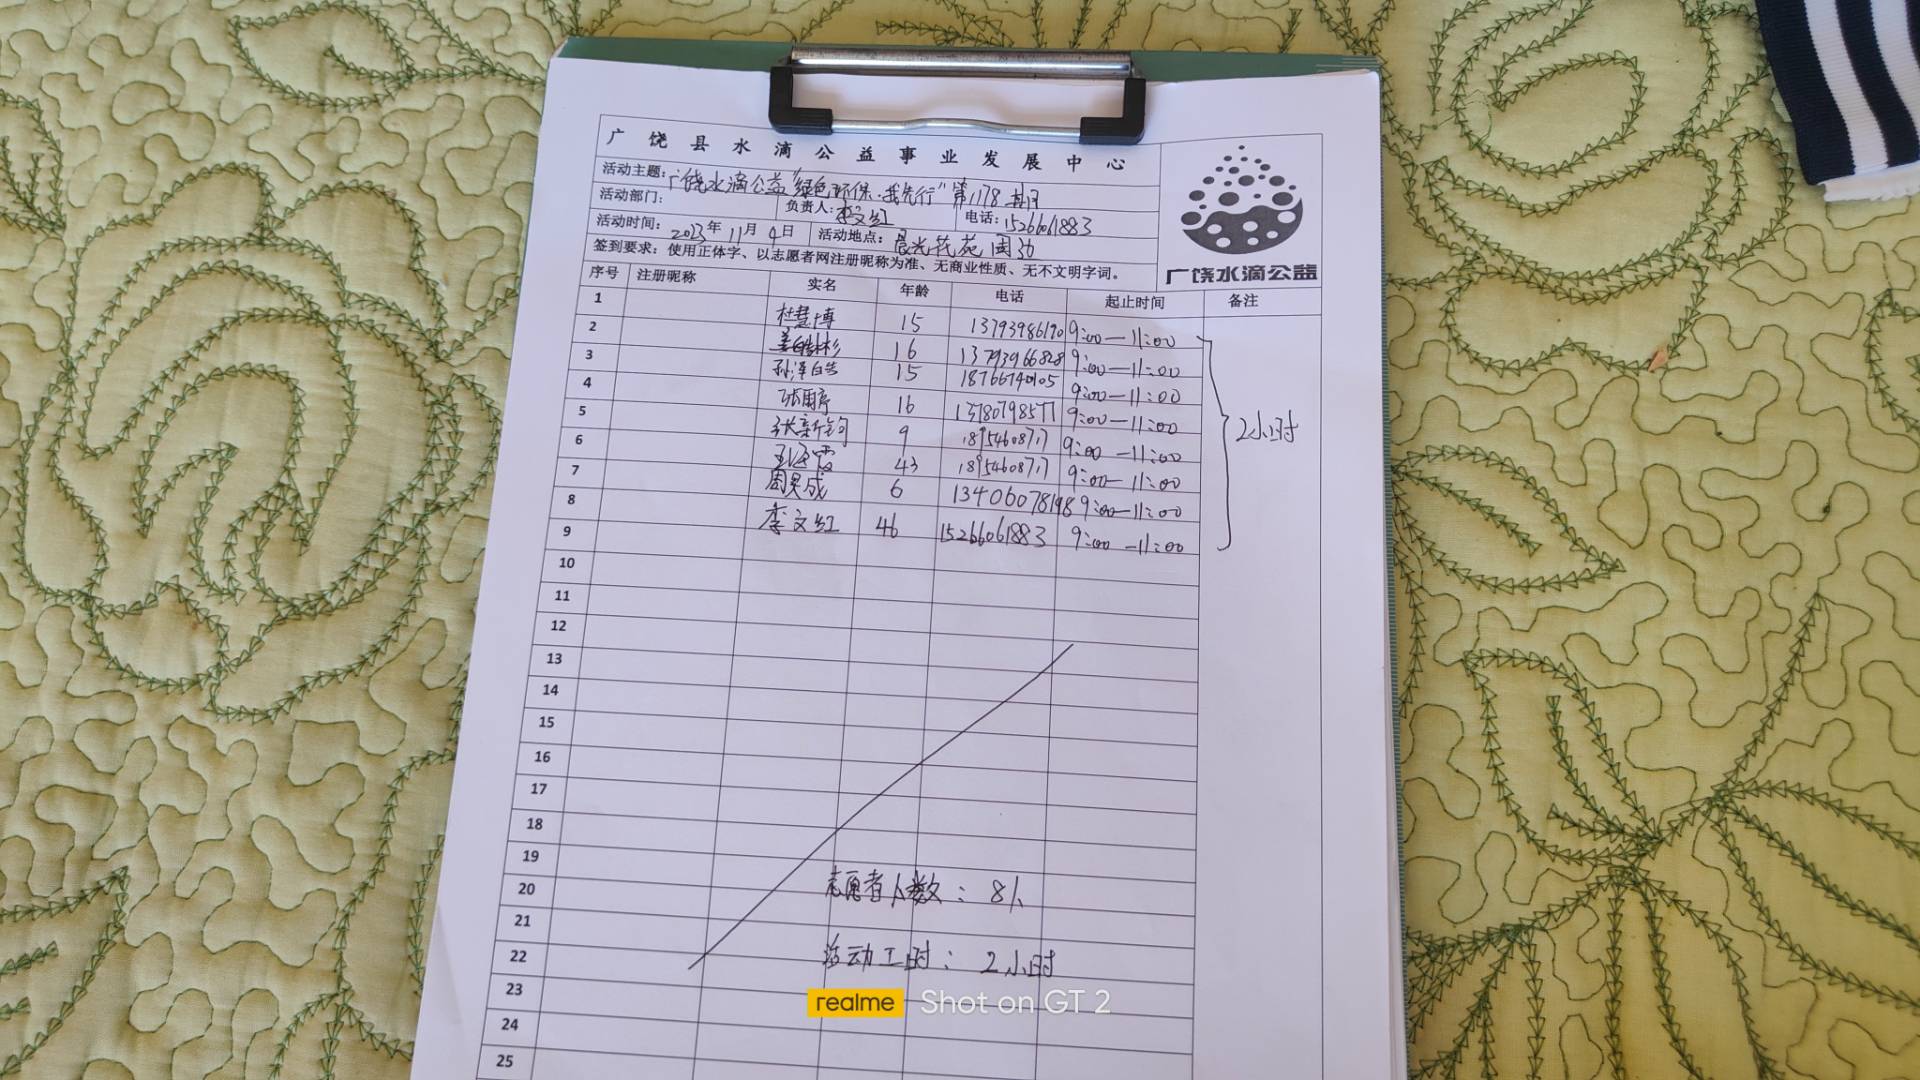 广饶县水滴公益事业发展中心
活动主题：广饶水滴公益"绿色环保·我先行"第1178期
活动部门： 负责人：李文红 电话：15266061883
活动时间：2023年11月4日 活动地点：晨光花苑周边
签到要求：使用正体字、以志愿者网注册昵称为准、无商业性质、无不文明字词。
广饶水滴公益
序号 注册昵称 实名 年龄 电话 起止时间 备注
1 杜慧博 15 13793986190 9:00—11:00
2 16 13793966828 9:00—11:00
3 孙泽皓 15 18766740105 9:00—11:00
4 16 13780798577 9:00—11:00
5 张新钧 9 9:00—11:00
6 43 9:00—11:00
7 周昊成 6 13406078198 9:00—11:00
8 李文红 46 15266061883 9:00—11:00
2小时
9
10
11
12
13
14
15
16
17
18
19
20 志愿者人数：8人
21
22 活动工时：2小时
23
24
25
realme Shot on GT 2